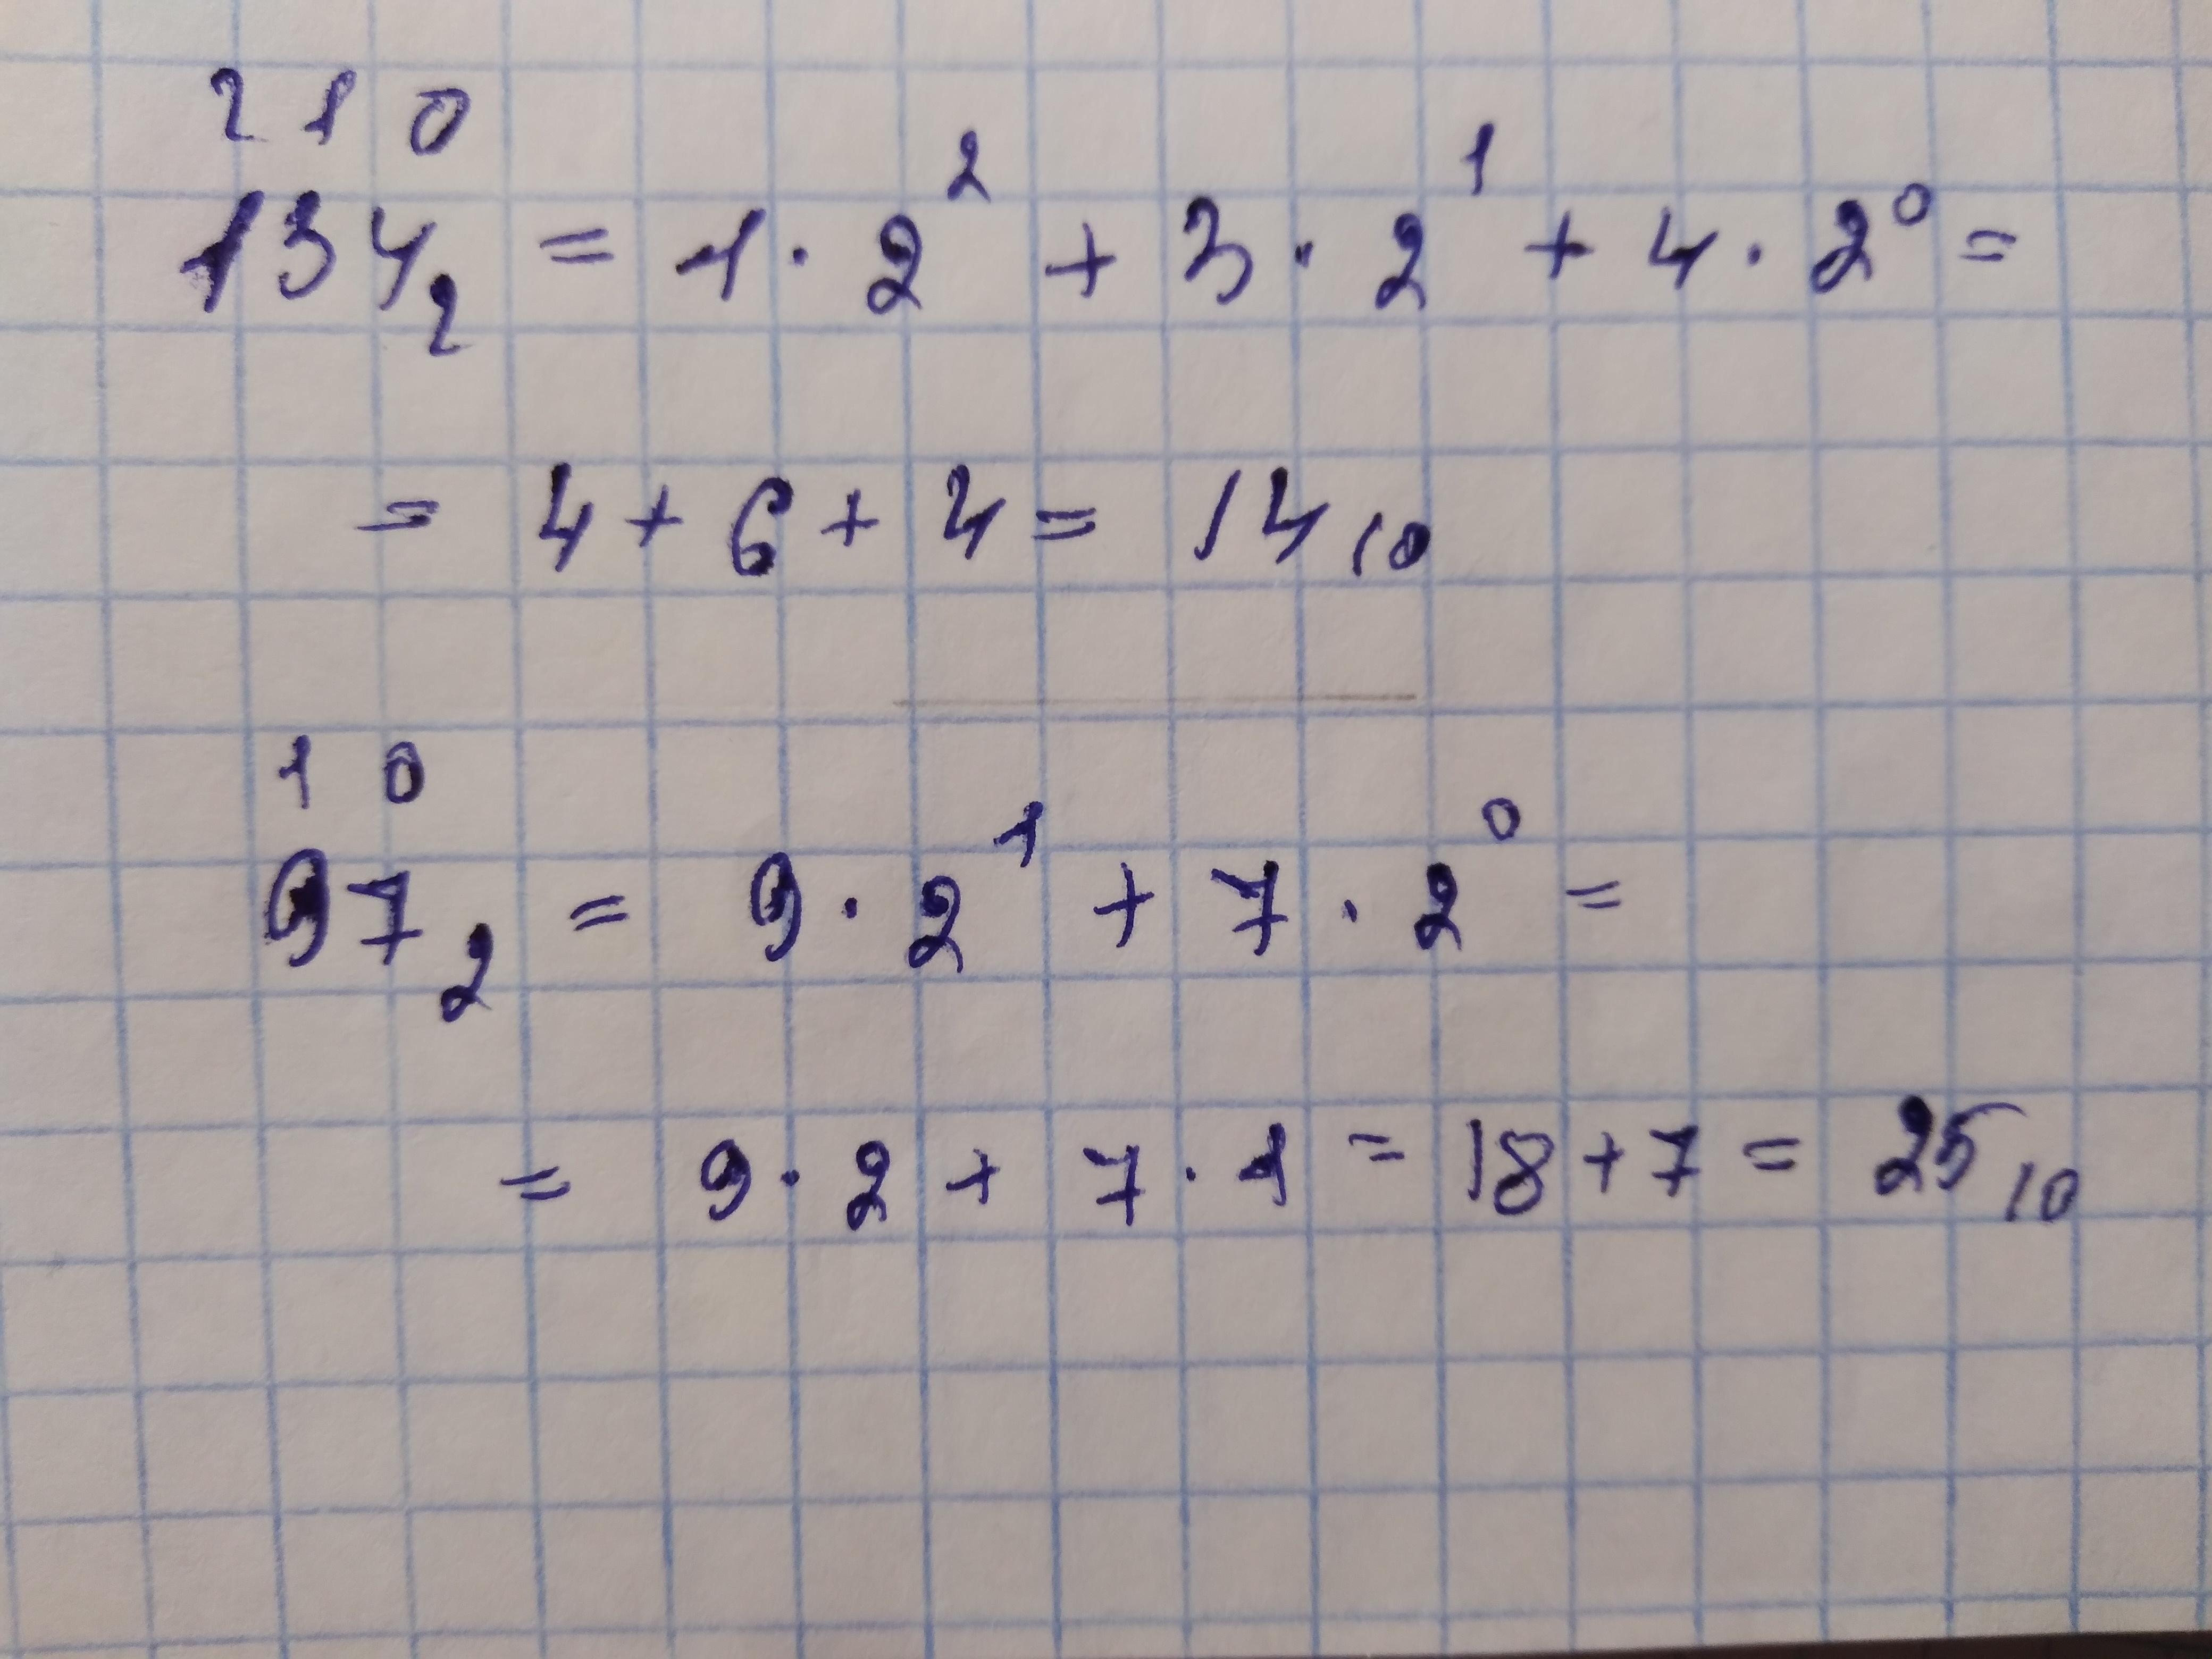 2 1 0
134₂ = 1 · 2² + 3 · 2¹ + 4 · 2⁰ =
= 4 + 6 + 4 = 14₁₀
1 0
97₂ = 9 · 2¹ + 7 · 2⁰ =
= 9 · 2 + 7 · 1 = 18 + 7 = 25₁₀